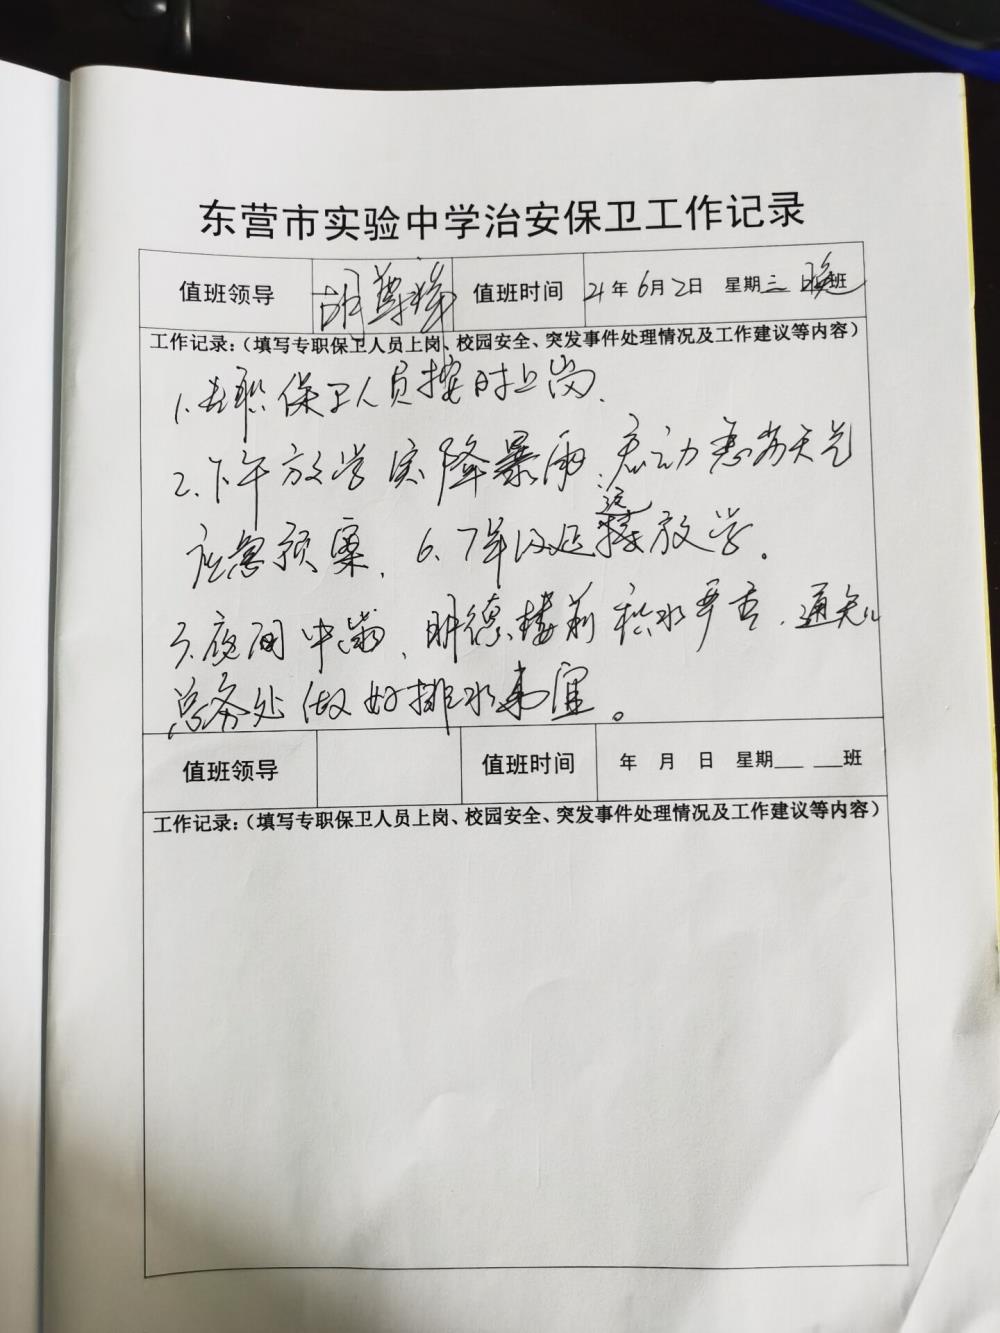 东营市实验中学治安保卫工作记录
值班领导 胡 值班时间 21年6月2日 星期三 晚班
工作记录：（填写专职保卫人员上岗、校园安全、突发事件处理情况及工作建议等内容）
1.专职保卫人员按时上岗.
2.下午放学突降暴雨，启动恶劣天气
应急预案，6.7年级延迟放学。
3.夜间中雨，明德楼前积水严重，通知
总务处做好排水
值班领导 值班时间 年 月 日 星期___ ___班
工作记录：（填写专职保卫人员上岗、校园安全、突发事件处理情况及工作建议等内容）